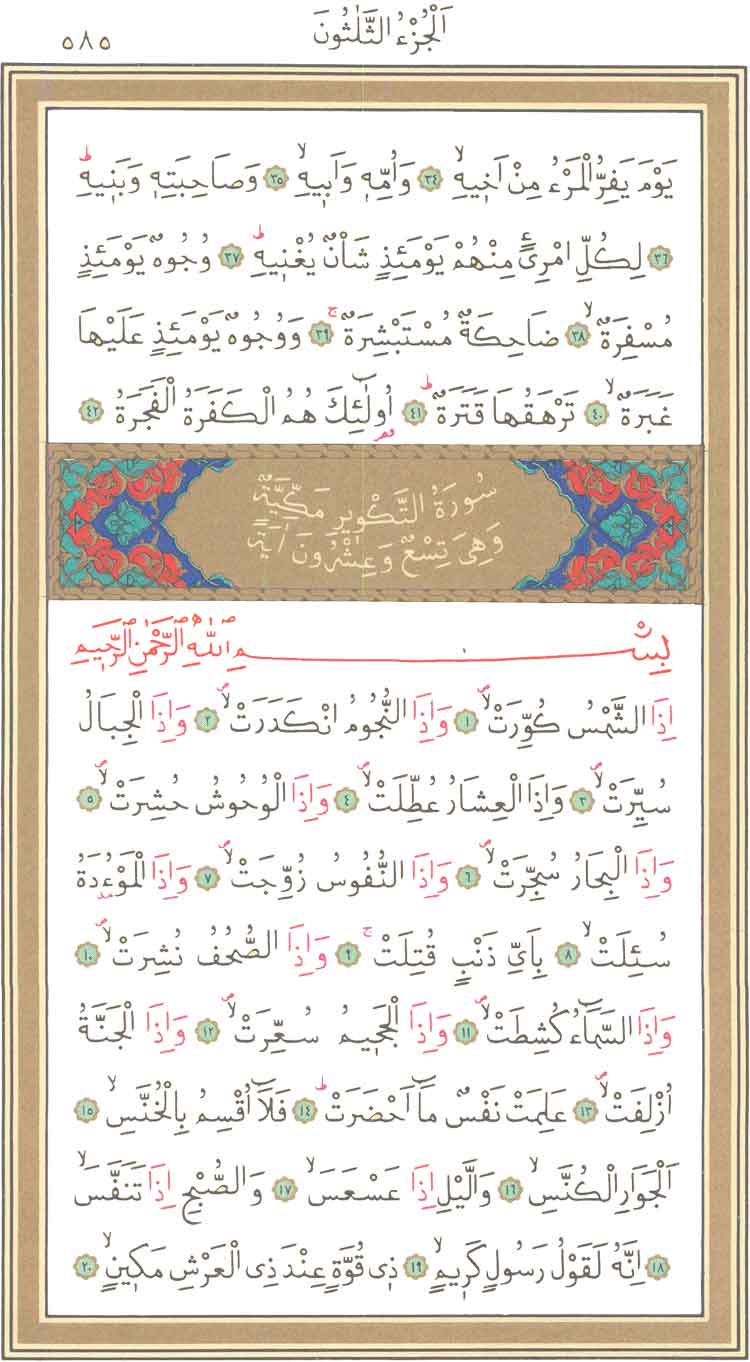 اَلْجُزْءُ الثَّلٰثُونَ
٥٨٥
يَوْمَ يَفِرُّ الْمَرْءُ مِنْ اَخ۪يهِۙ ٣٤ وَاُمِّه۪ وَاَب۪يهِۙ ٣٥ وَصَاحِبَتِه۪ وَبَن۪يهِۜ
٣٦ لِكُلِّ امْرِئٍ مِنْهُمْ يَوْمَئِذٍ شَاْنٌ يُغْن۪يهِۜ ٣٧ وُجُوهٌ يَوْمَئِذٍ
مُسْفِرَةٌۙ ٣٨ ضَاحِكَةٌ مُسْتَبْشِرَةٌۚ ٣٩ وَوُجُوهٌ يَوْمَئِذٍ عَلَيْهَا
غَبَرَةٌۙ ٤٠ تَرْهَقُهَا قَتَرَةٌۜ ٤١ اُو۬لٰٓئِكَ هُمُ الْكَفَرَةُ الْفَجَرَةُ ٤٢
سُورَةُ التَّكْوِيرِ مَكِّيَّةٌ
وَهِيَ تِسْعٌ وَعِشْرُونَ اٰيَةً
بِسْمِ اللّٰهِ الرَّحْمٰنِ الرَّح۪يمِ
اِذَا الشَّمْسُ كُوِّرَتْۙ ١ وَاِذَا النُّجُومُ انْكَدَرَتْۙ ٢ وَاِذَا الْجِبَالُ
سُيِّرَتْۙ ٣ وَاِذَا الْعِشَارُ عُطِّلَتْۙ ٤ وَاِذَا الْوُحُوشُ حُشِرَتْۙ ٥
وَاِذَا الْبِحَارُ سُجِّرَتْۙ ٦ وَاِذَا النُّفُوسُ زُوِّجَتْۙ ٧ وَاِذَا الْمَوْءُ۫دَةُ
سُئِلَتْۙ ٨ بِاَيِّ ذَنْبٍ قُتِلَتْۚ ٩ وَاِذَا الصُّحُفُ نُشِرَتْۙ ١٠
وَاِذَا السَّمَٓاءُ كُشِطَتْۙ ١١ وَاِذَا الْجَح۪يمُ سُعِّرَتْۙ ١٢ وَاِذَا الْجَنَّةُ
اُزْلِفَتْۙ ١٣ عَلِمَتْ نَفْسٌ مَٓا اَحْضَرَتْۜ ١٤ فَلَٓا اُقْسِمُ بِالْخُنَّسِۙ ١٥
اَلْجَوَارِ الْكُنَّسِۙ ١٦ وَالَّيْلِ اِذَا عَسْعَسَۙ ١٧ وَالصُّبْحِ اِذَا تَنَفَّسَۙ
١٨ اِنَّهُ لَقَوْلُ رَسُولٍ كَر۪يمٍۙ ١٩ ذ۪ي قُوَّةٍ عِنْدَ ذِي الْعَرْشِ مَك۪ينٍۙ ٢٠